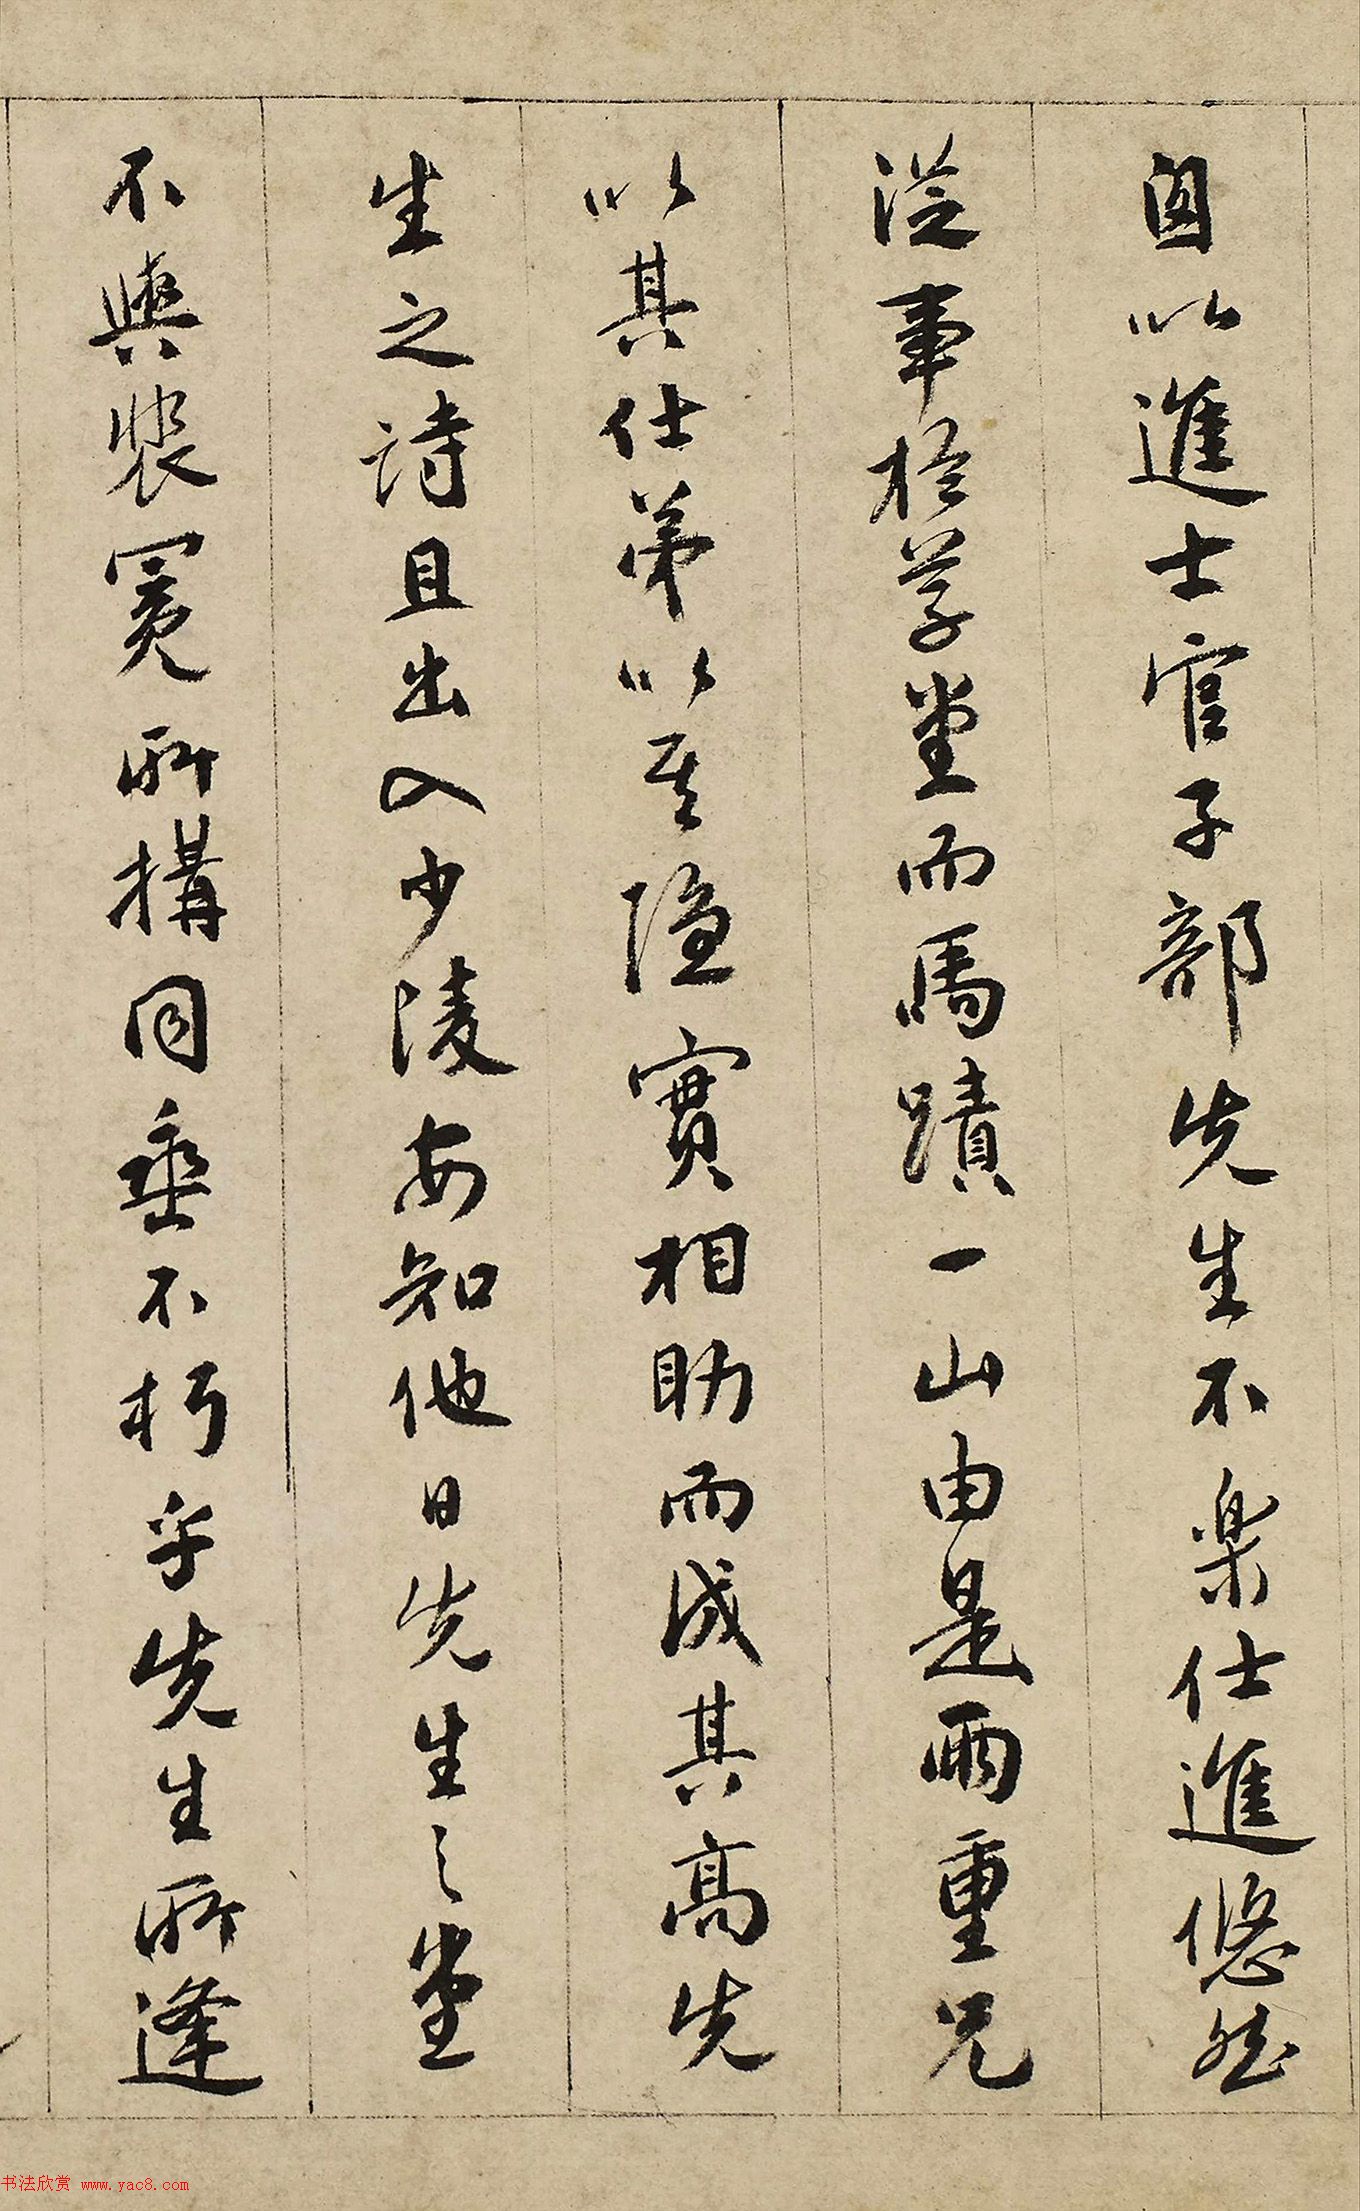 因以進士官子部先生不樂仕進悠然
從事於草堂而馬蹟一山由是兩重兄
以其仕弟以其隱實相助而成其高先
生之詩且出入少陵安知他日先生之堂
不與裴冕所構同垂不朽乎先生所逢
书法欣赏 www.yac8.com